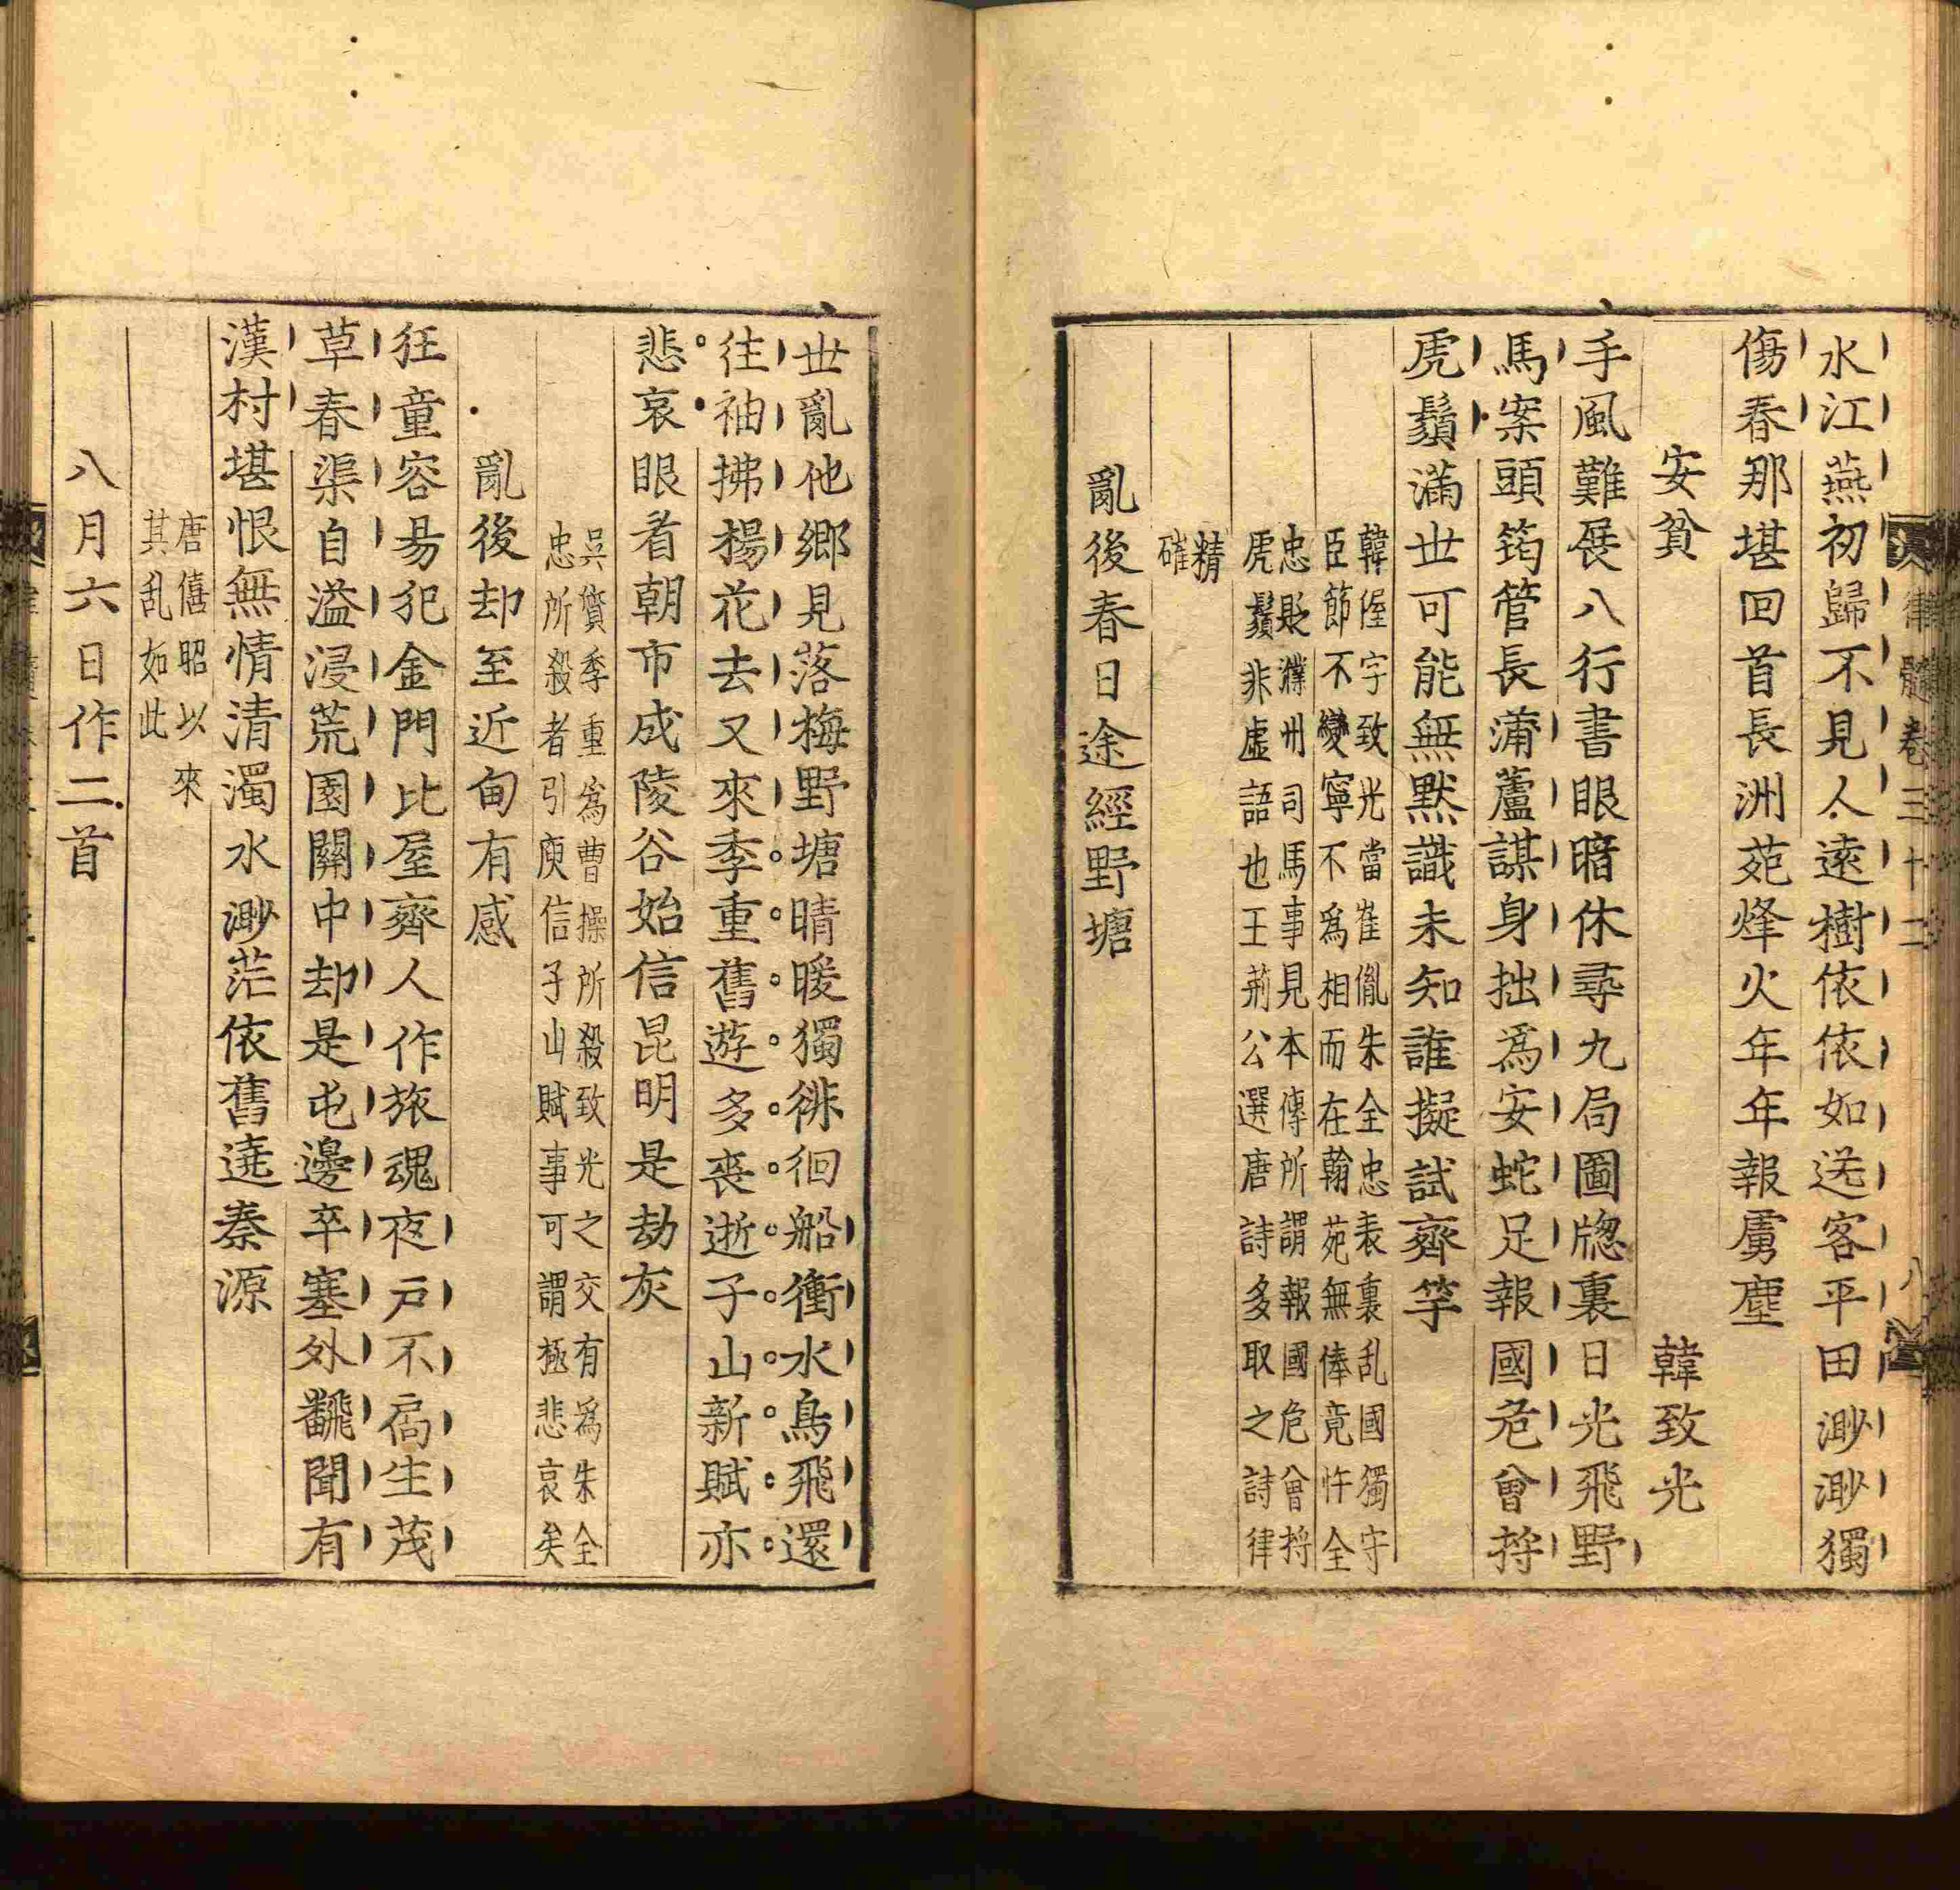 律髓卷三十二 八
水江燕初歸不見人遠樹依依如送客平田渺渺獨
傷春那堪回首長洲苑烽火年年報虜塵
安貧 韓致光
手風難展八行書眼暗休尋九局圖牕裏日光飛野
馬案頭筠管長蒲蘆謀身拙爲安蛇足報國危曾捋
虎鬚滿世可能無默識未知誰擬試齊竽
韓偓字致光當崔胤朱全忠表裏乱國獨守
臣節不變寧不爲相而在翰苑無俸竟忤全
忠貶濮州司馬事見本傳所謂報國危曾捋
虎鬚非虛語也王荊公選唐詩多取之詩律
精
確
亂後春日途經野塘
世亂他鄉見落梅野塘晴暖獨徘徊船衝水鳥飛還
往袖拂楊花去又來季重舊遊多喪逝子山新賦亦
悲哀眼看朝市成陵谷始信昆明是劫灰
吳質季重爲曹操所殺致光之交有爲朱全
忠所殺者引庾信子山賦事可謂極悲哀矣
亂後却至近甸有感
狂童容易犯金門比屋齊人作旅魂夜戶不扃生茂
草春渠自溢浸荒園關中却是屯邊卒塞外飜聞有
漢村堪恨無情清濁水渺茫依舊遶秦源
唐僖昭以來
其乱如此
八月六日作二首